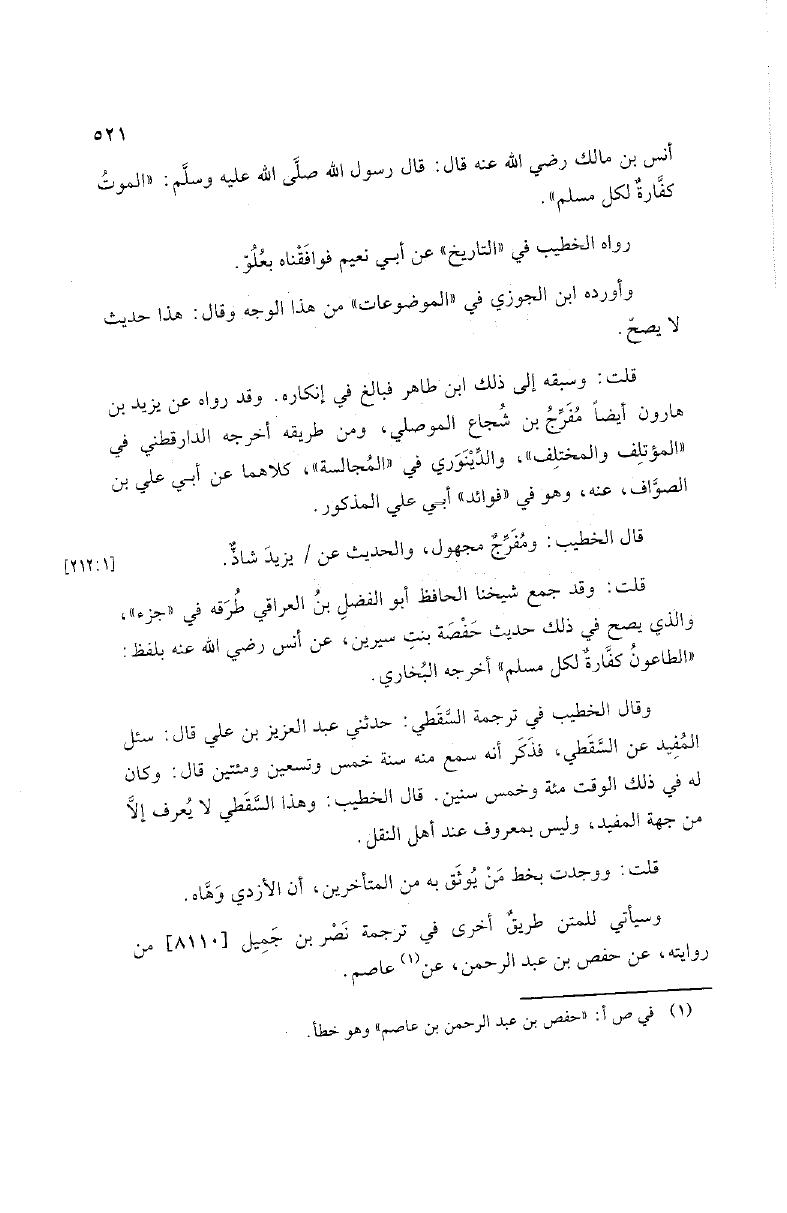 ٥٢١
أنس بن مالك رضي الله عنه قال: قال رسول الله صلَّى الله عليه وسلَّم: «الموتُ
كفَّارةٌ لكل مسلم».
رواه الخطيب في «التاريخ» عن أبي نعيم فوافَقْناه بعُلُوّ.
وأورده ابن الجوزي في «الموضوعات» من هذا الوجه وقال: هذا حديث
لا يصحّ.
قلت: وسبقه إلى ذلك ابن طاهر فبالغ في إنكاره. وقد رواه عن يزيد بن
هارون أيضاً مُفَرِّجُ بن شُجاع الموصلي، ومن طريقه أخرجه الدارقطني في
«المؤتلِف والمختلِف»، والدِّيْنَوَري في «المُجالسة»، كلاهما عن أبي علي بن
الصوَّاف، عنه، وهو في «فوائد» أبي علي المذكور.
قال الخطيب: ومُفَرِّجٌ مجهول، والحديث عن / يزيدَ شاذٌّ.
[٢١٢:١]
قلت: وقد جمع شيخنا الحافظ أبو الفضلِ بنُ العراقي طُرَقه في «جزء»،
والذي يصح في ذلك حديث حَفْصَة بنتِ سيرين، عن أنس رضي الله عنه بلفظ:
«الطاعونُ كفَّارةٌ لكل مسلم» أخرجه البُخاري.
وقال الخطيب في ترجمة السَّقَطي: حدثني عبد العزيز بن علي قال: سئل
المُفِيد عن السَّقَطي، فذَكَر أنه سمع منه سنة خمس وتسعين ومئتين قال: وكان
له في ذلك الوقت مئة وخمس سنين. قال الخطيب: وهذا السَّقَطي لا يُعرف إلاَّ
من جهة المفيد، وليس بمعروف عند أهل النقل.
قلت: ووجدت بخط مَنْ يُوثَق به من المتأخرين، أن الأزدي وَهَّاه.
وسيأتي للمتن طريقٌ أخرى في ترجمة نَصْر بن جَمِيل [٨١١٠] من
روايته، عن حفص بن عبد الرحمن، عن(١) عاصم.
(١) في ص أ: «حفص بن عبد الرحمن بن عاصم» وهو خطأ.